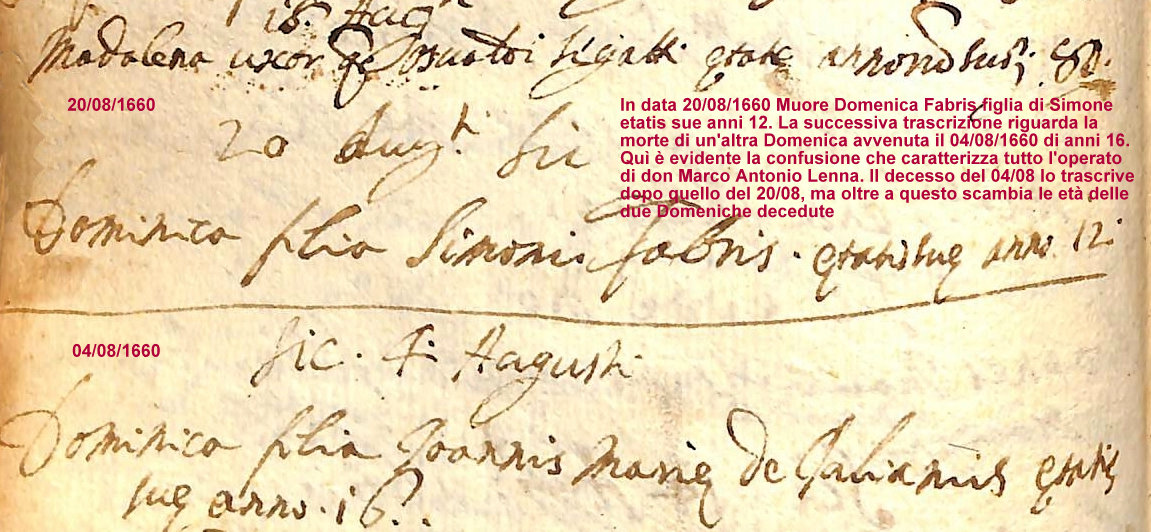 18. Aug
Madalena uxor qd Osvaldi Sigalli etate annorũ sue; 80.
20/08/1660
In data 20/08/1660 Muore Domenica Fabris figlia di Simone
etatis sue anni 12. La successiva trascrizione riguarda la
morte di un'altra Domenica avvenuta il 04/08/1660 di anni 16.
Quì è evidente la confusione che caratterizza tutto l'operato
di don Marco Antonio Lenna. Il decesso del 04/08 lo trascrive
dopo quello del 20/08, ma oltre a questo scambia le età delle
due Domeniche decedute
20 Augti Sic
Dominica filia Simonis Fabris. etatis sue anno. 12.
04/08/1660
Sic. 4. Aagusti
Dominica filia Joannis Marie de Galianis etatis
sue anno. 16..